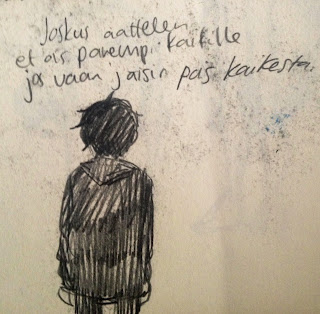 Joskus aattelen
et ois parempi kaikille
jos vaan jäisin pois kaikesta.